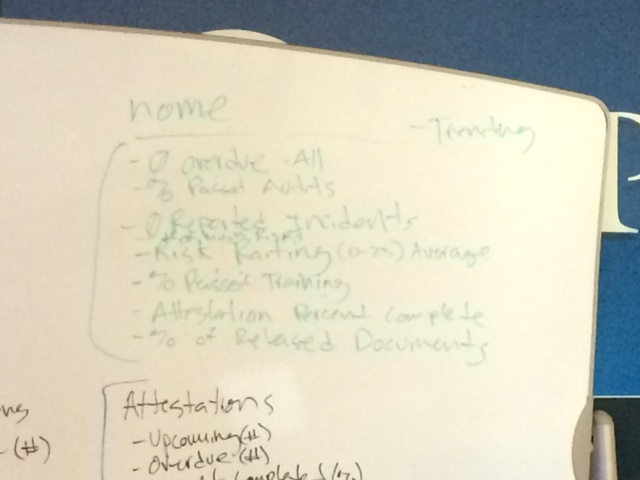 home
- Trending
- 0 Overdue - All
- % Passed Audits
- 0 Reported Incidents
- Risk Ratting (0-25) Average
- % Passed Training
- Attestation Percent Complete
- % of Released Documents
Attestations
- Upcoming (#)
- Overdue (#)
Completed (%)
- (#)
P